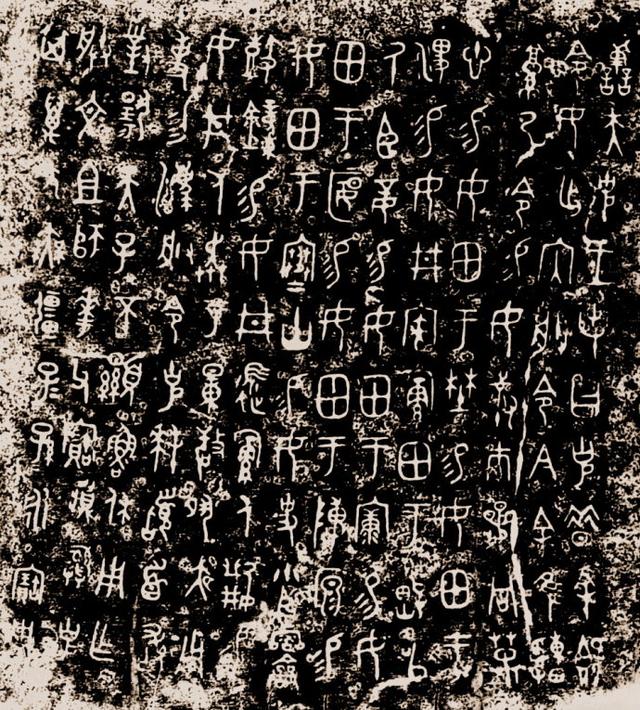 譱夫克王若曰克昔余既
令女出內朕令今余隹
乃令易女叔巿參冋
悤易女田于埜易女田于
渒易女井田于以
厥臣妾易女田于康易女
田于匽易女田于原易
女田于寒山易女史小臣霝龠
鼓鐘易女井人易
女井人奔于量敬夙夜用
事勿灋朕令克拜𩒨首
敢對揚天子不顯魯休用乍
朕文且師華父寶彝
克其萬年無彊子子孫孫永寶用